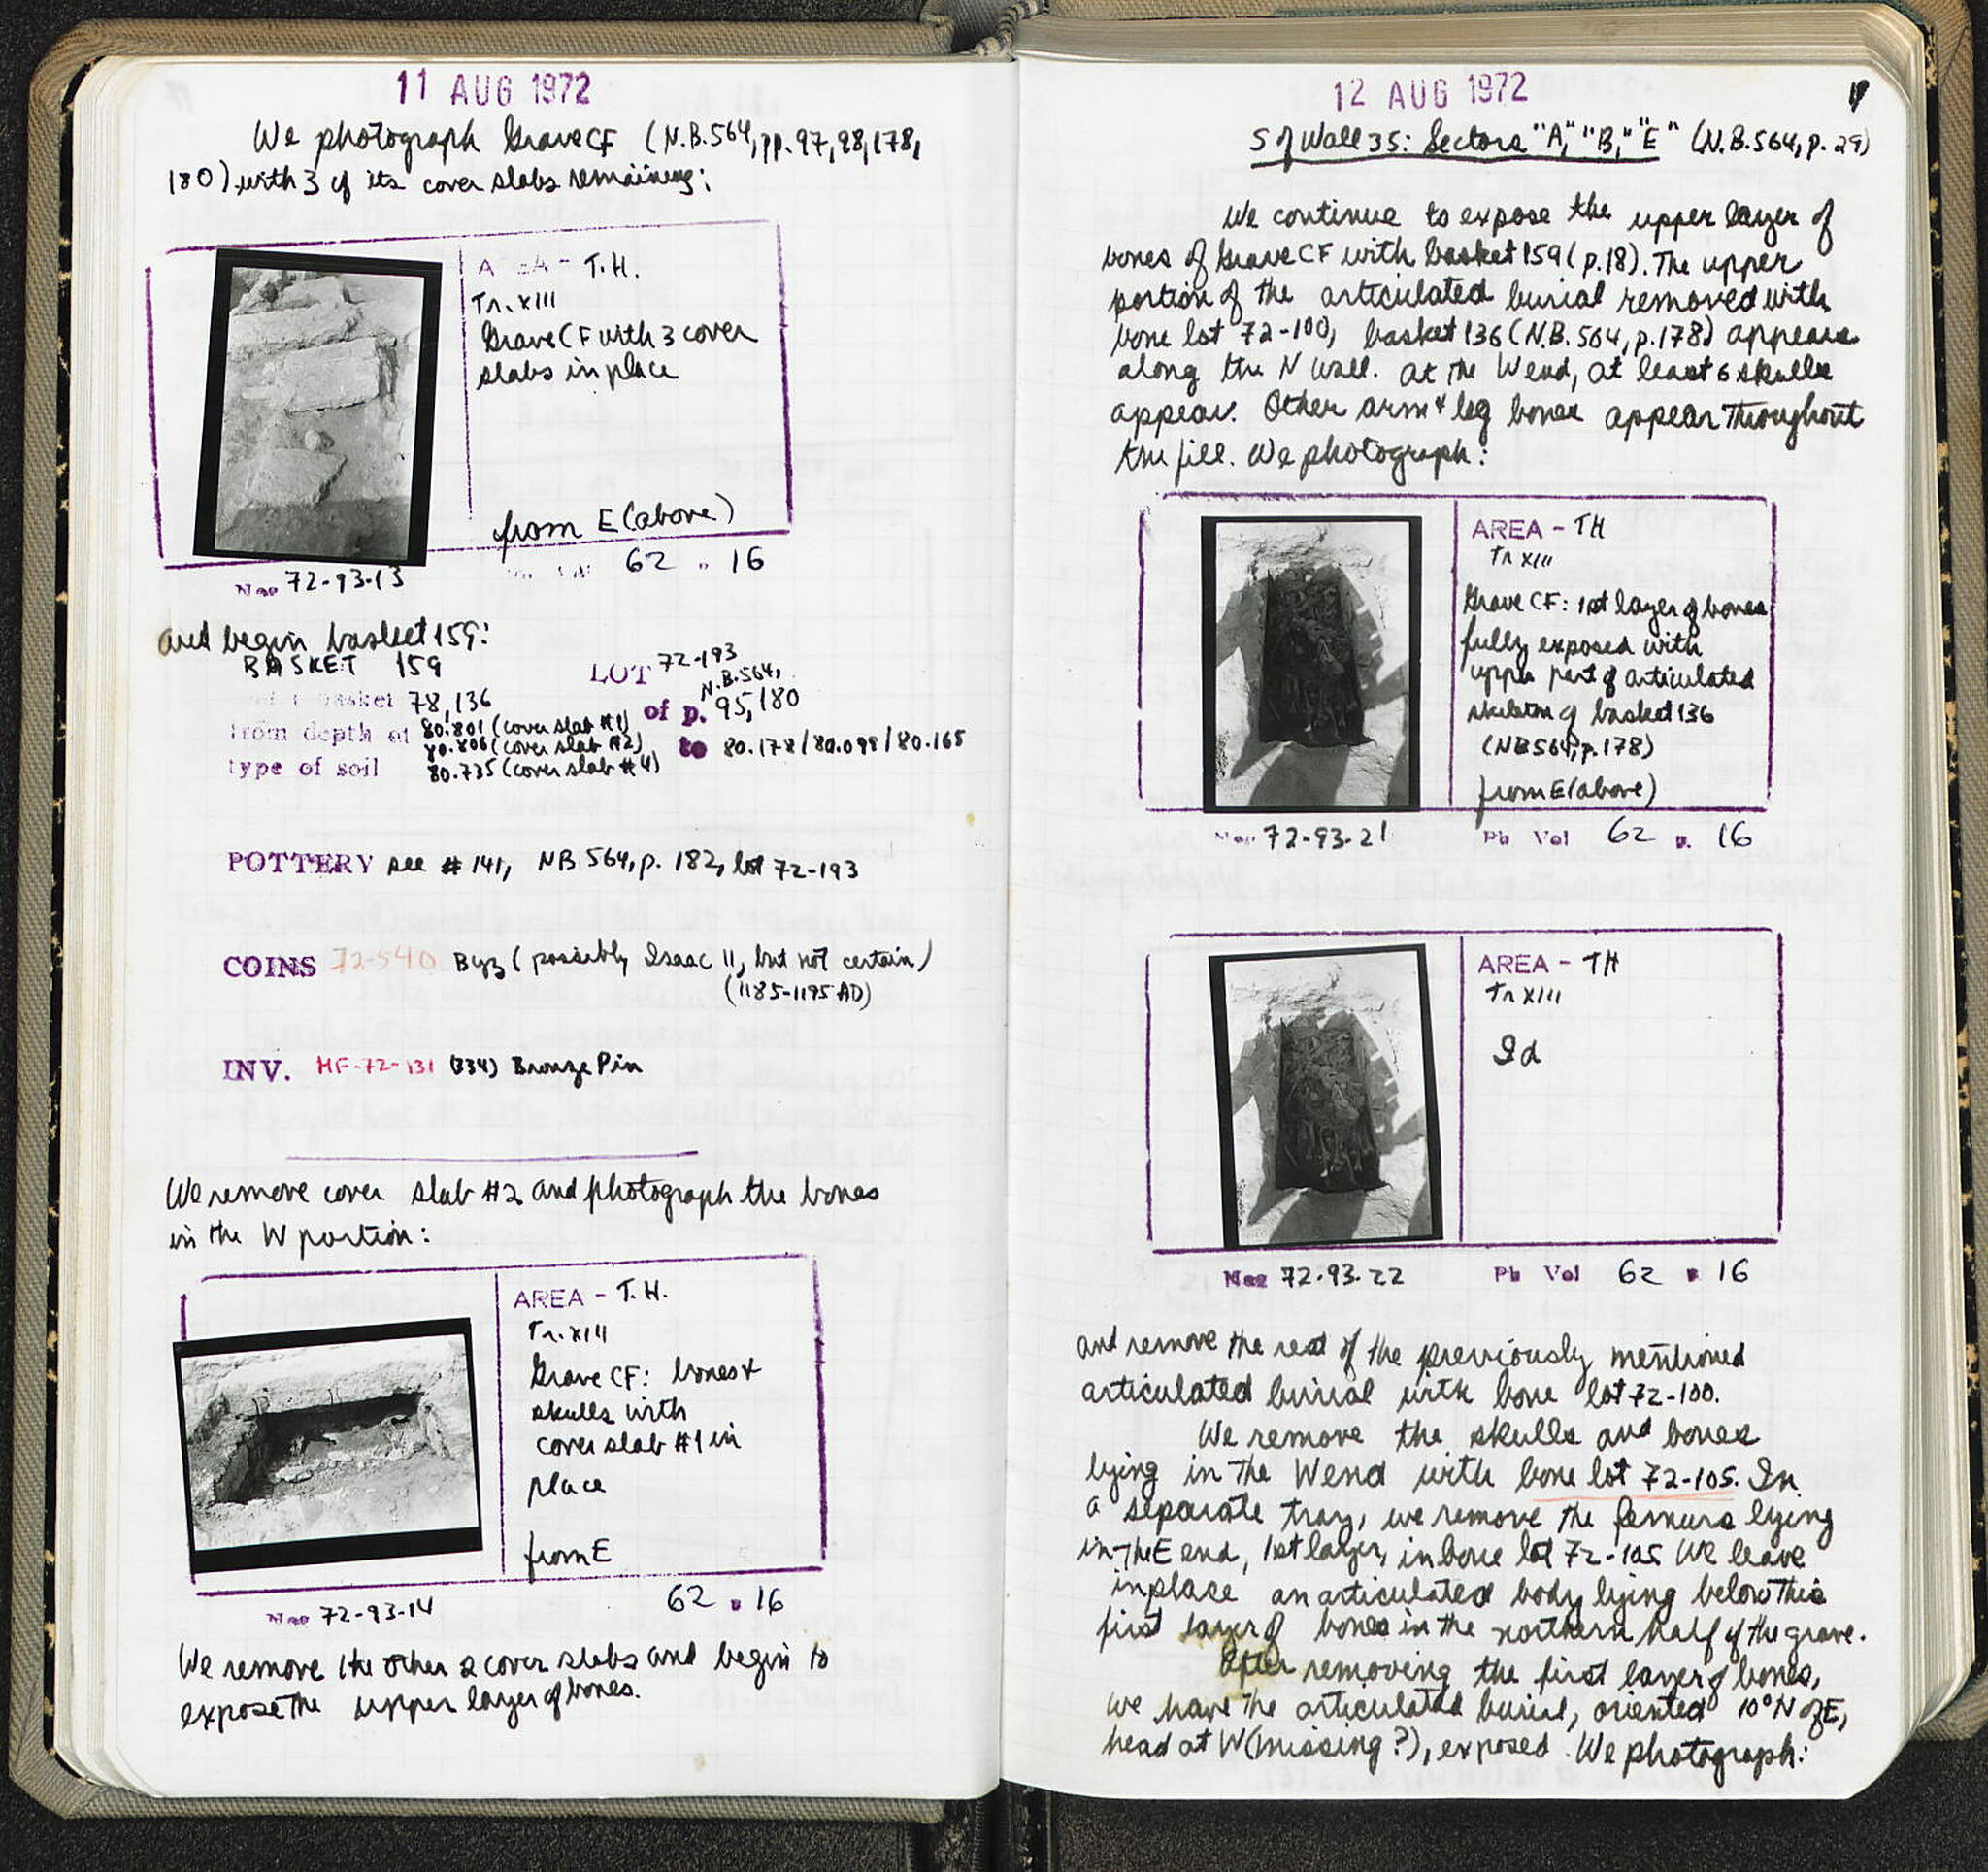 11 AUG 1972
We photograph Grave CF (N.B. 564, pp. 97, 98, 178,
180) with 3 of its cover slabs remaining:
A EA - T.H.
Tr. XIII
Grave CF with 3 cover
slabs in place
from E (above)
62 p 16
Neg 72-93-13
and begin basket 159:
BASKET 159
LOT 72-193
N.B. 564,
basket 78, 136
of p. 95, 180
from depth of 80.801 (cover slab #1)
80.806 (cover slab #2)
to 80.178/80.098/80.165
type of soil 80.735 (cover slab #4)
POTTERY see #141, NB 564, p. 182, lot 72-193
COINS 72-540 Byz (possibly Isaac II, but not certain)
(1185-1195 AD)
INV. MF-72-131 (334) Bronze Pin
We remove cover slab #2 and photograph the bones
in the W portion:
AREA - T.H.
Tr. XIII
Grave CF: bones +
skulls with
cover slab #1 in
place
from E
Neg 72-93-14
62 p 16
We remove the other 2 cover slabs and begin to
expose the upper layer of bones.
12 AUG 1972
S of Wall 35: Sectors "A," "B," "E" (N.B. 564, p. 29)
We continue to expose the upper layer of
bones of Grave CF with basket 159 (p. 18). The upper
portion of the articulated burial removed with
bone lot 72-100, basket 136 (N.B. 564, p. 178) appears
along the N wall. At the W end, at least 6 skulls
appear. Other arm + leg bones appear throughout
the fill. We photograph:
AREA - TH
Tr XIII
Grave CF: 1st layer of bones
fully exposed with
upper part of articulated
skeleton of basket 136
(NB 564, p. 178)
from E (above)
Neg 72-93-21
Pb Vol 62 p. 16
AREA - TH
Tr XIII
Id
Neg 72-93-22
Pb Vol 62 p 16
and remove the rest of the previously mentioned
articulated burial with bone lot 72-100.
We remove the skulls and bones
lying in the W end with bone lot 72-105. In
a separate tray, we remove the femurs lying
in the E end, 1st layer, in bone lot 72-105. We leave
in place an articulated body lying below this
first layer of bones in the northern half of the grave.
After removing the first layer of bones,
we have the articulated burial, oriented 10° N of E,
head at W (missing?), exposed. We photograph: